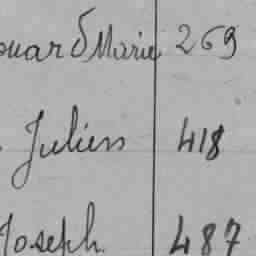 ouard Marie 269
Julien 418
Joseph 487